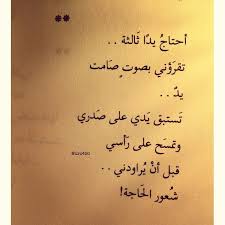 **
أحتاجُ يدًا ثَالثة ..
تقرَؤني بصوتٍ صَامت
يدٌ ..
تَستبق يَدي على صَدري
وتمسَح على رَأسي
قبل أنْ يُراودني ..
شُعور الحَاجة!